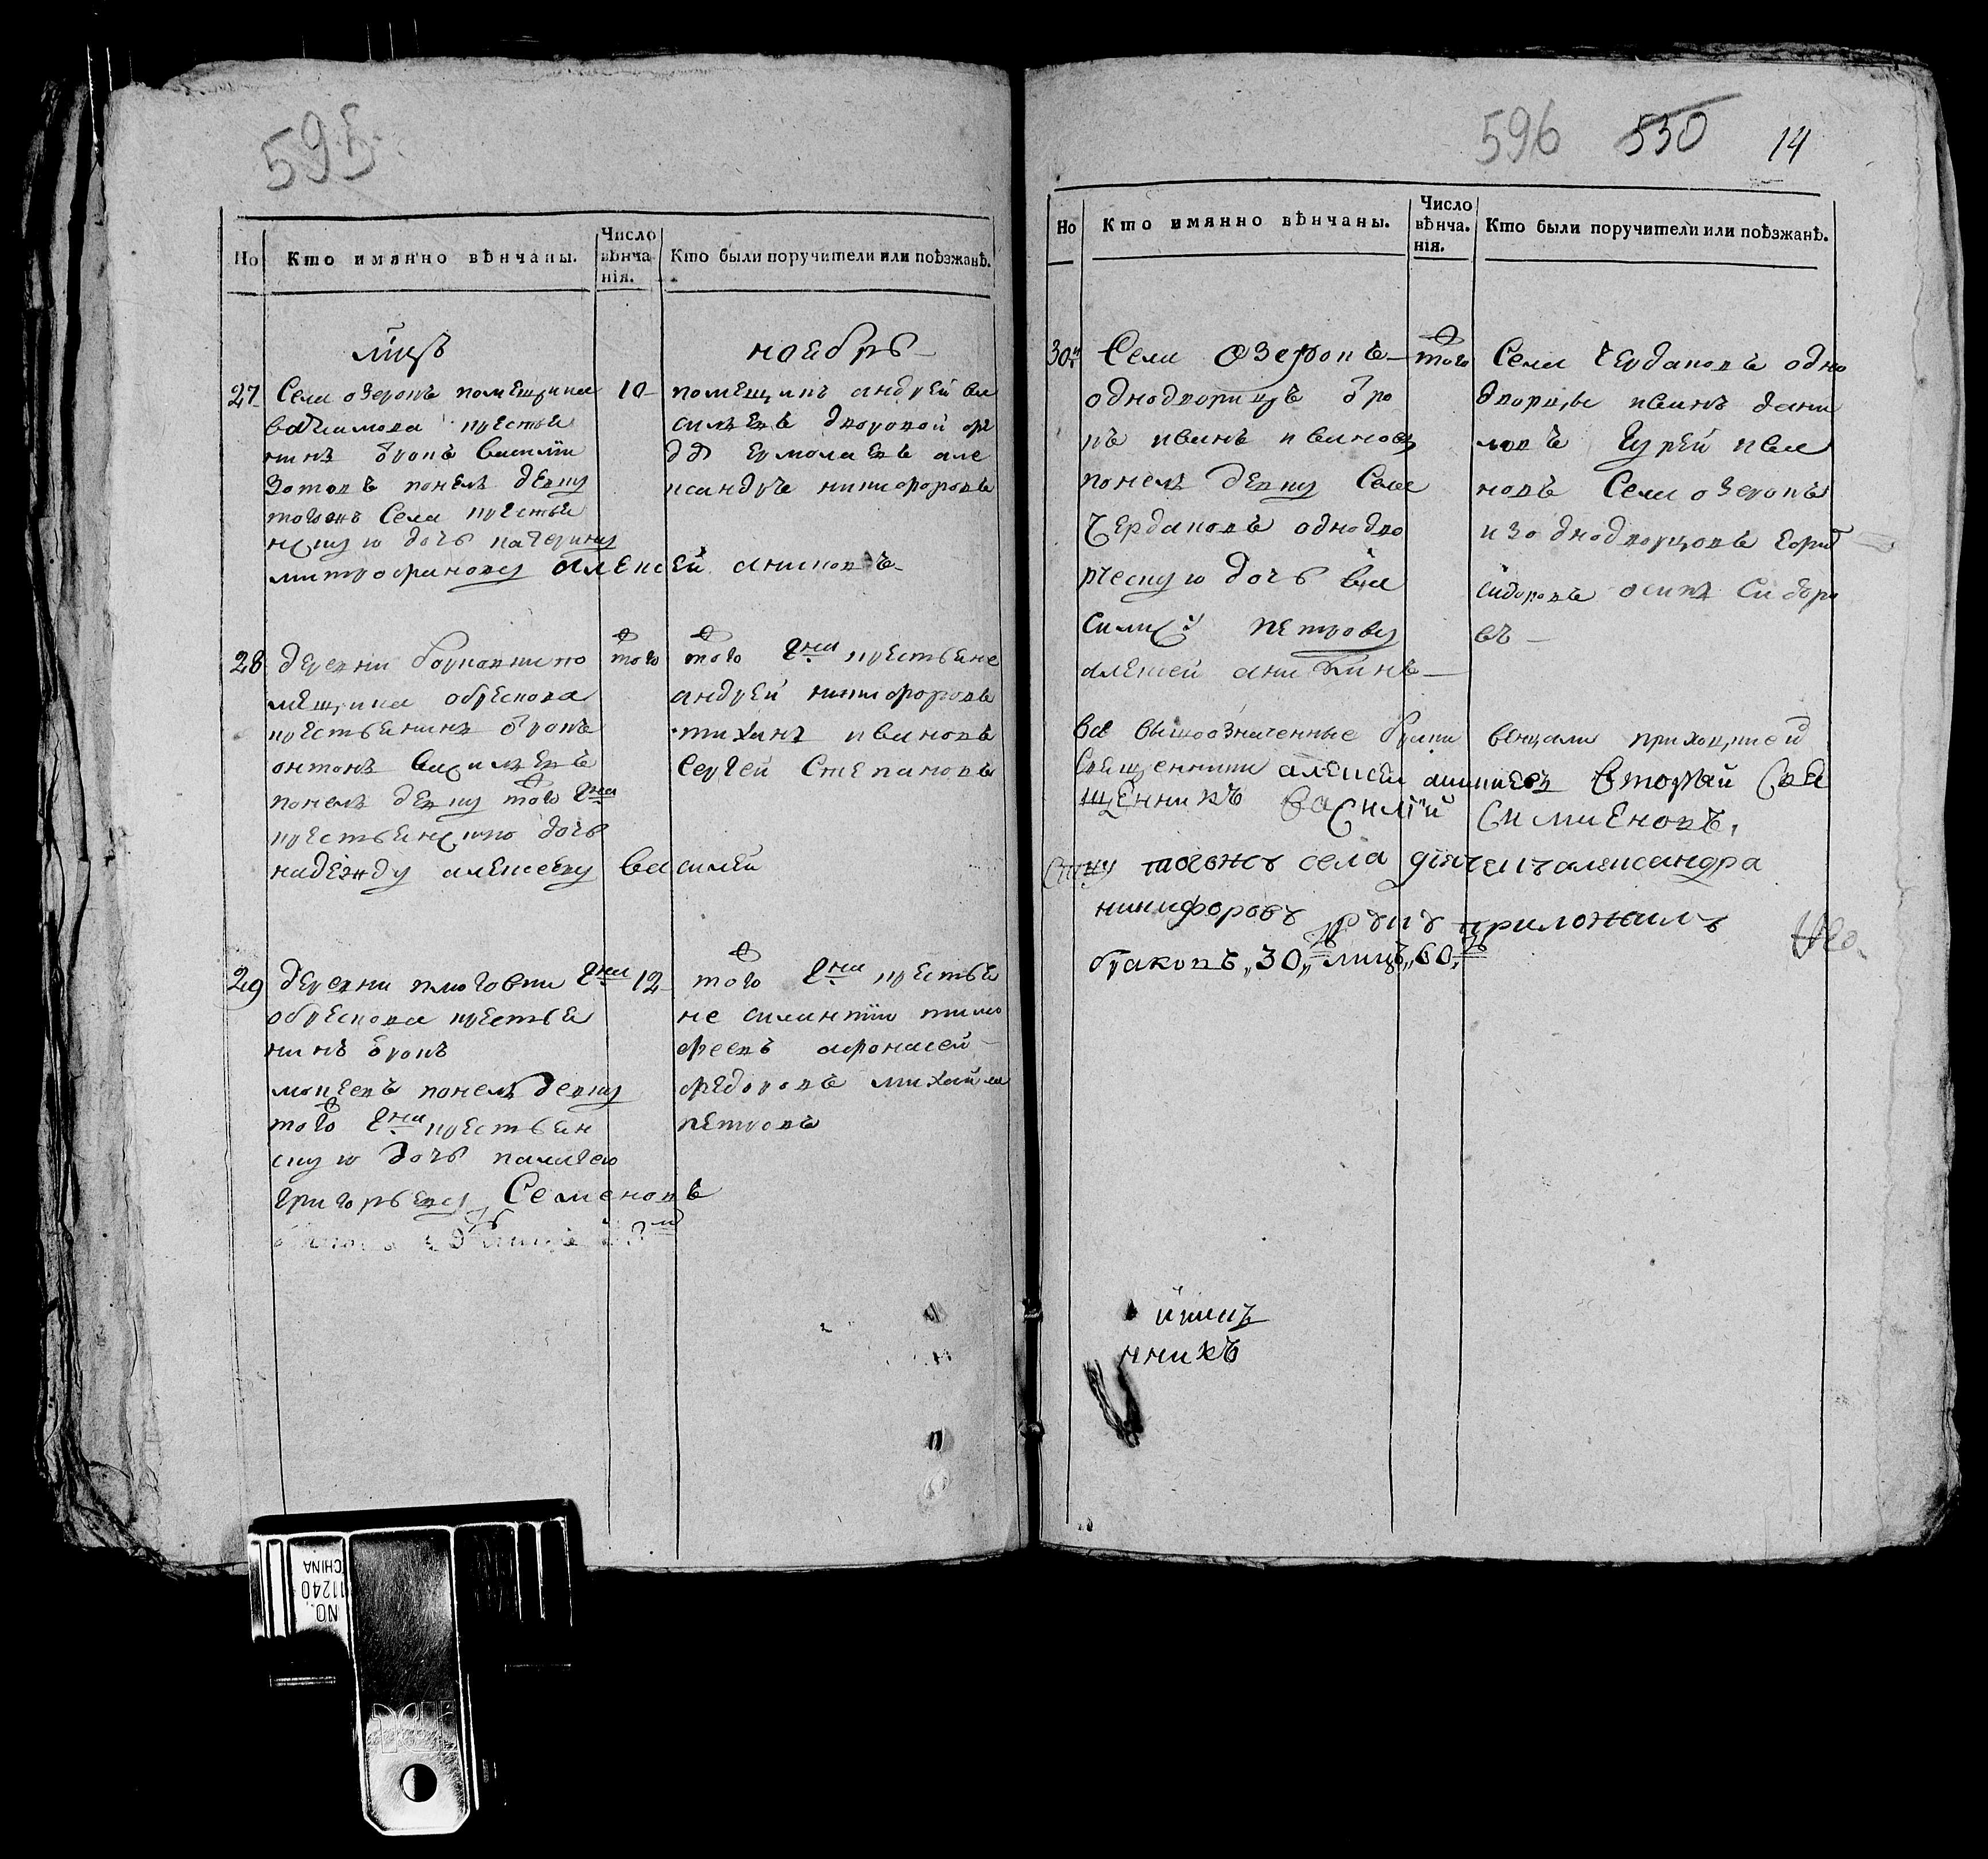 595
Но
Кто имянно вѣнчаны.
Число вѣнчанія.
Кто были поручители или поѣзжанѣ.
мцъ ноебрь
27 Села озерокъ помещика
крестья
нинъ Отрокъ василіи
Зотовъ понелъ девку
тогожъ Села крестья
нскую дочь катерину
митрофанову
10
помещикъ андрей ва
сильевъ дворовой
ермолаевъ але
ксандръ никифоровъ
алексей аниковъ
28 деревни
мещика обрескова
крестьенинъ Отрокъ
онтонъ васильевъ
понелъ девку того гна
крестьенскую дочь
надежду алексееву
того
того гна крестьене
андрей никифоровъ
тиханъ ивановъ
Сергей Степановъ
василей
29 деревни гна
обрескова крестья
нинъ Отрокъ
мокеевъ понелъ девку
того гна крестьян
скую дочь палагею
григорьеву Семеновъ
12
того гна крестья
не силантіи тимо
феевъ афонасей
федоровъ михайла
петровъ
596 550 14
Но
Кто имянно вѣнчаны.
Число вѣнчанія.
Кто были поручители или поѣзжанѣ.
30й Села Озерокъ
однодворицъ Отро
къ иванъ ивановъ
понелъ девку Села
Чердаковъ однодво
рческую дочь Ва
силису петрову
алексей аникинъ
того
Села Чердаковъ одно
дворцы иванъ дани
ловъ Гурей ива
новъ Села озерокъ
изо днодворцовъ
Сидоровъ осипъ Сидоро
въ
все вышеозначенные браки венчали приходские
Священники алексей аникиевъ второй Свя
щенникъ василій Симиеновъ,
тогожъ села дячекъ александра
никифоровъ руку приложилъ
браковъ „30„ лицъ „60„
нникъ
NO. 11240
CHINA